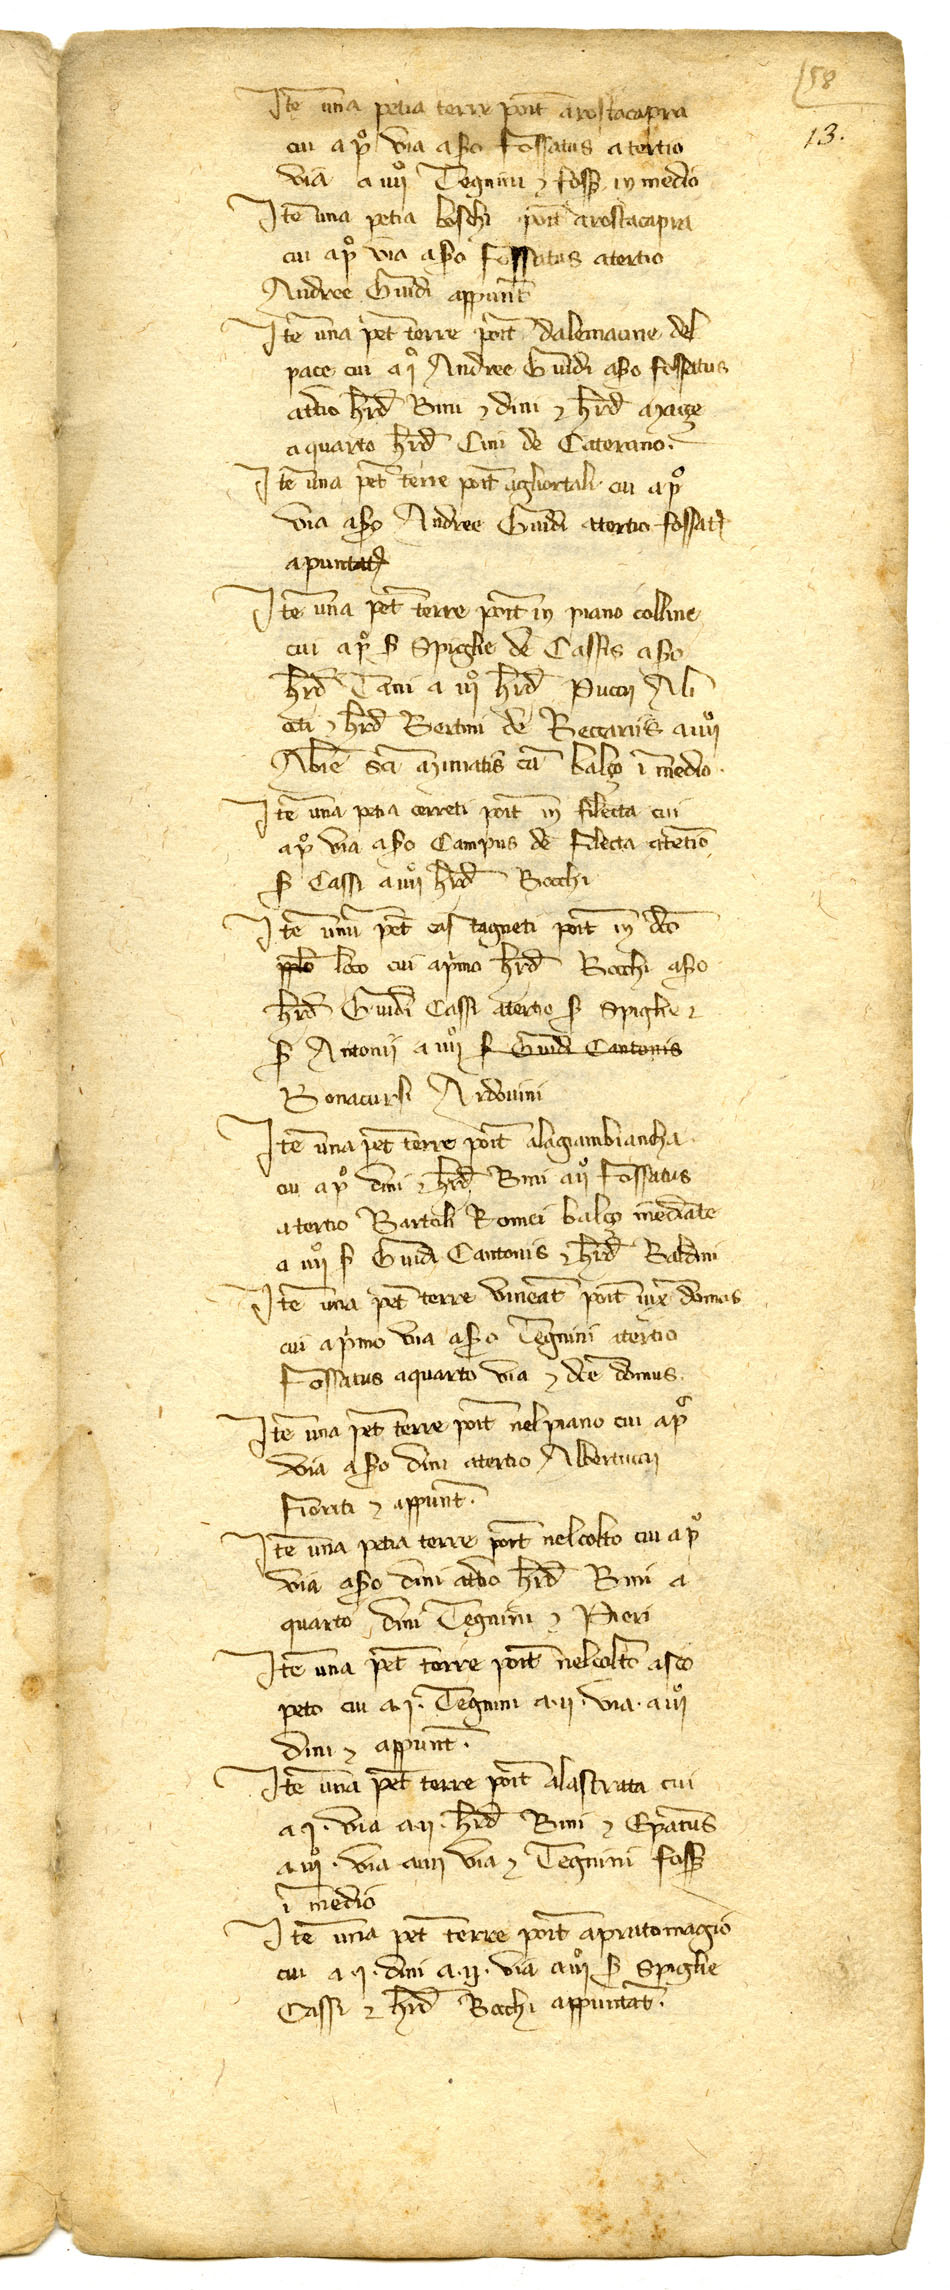 158
13.
Itē una petia terre poīt arostacapra
cui a pº via a sº fossatus a tertio
via a iiijº Tegnini ⁊ foss in medio
Itē una petia boschi poīt arostacapra
cui a pº via a sº fossatus a tertio
Andree Guidi appunt̄
Itē una pet̄ terre poīt dalemacine del
pace cui a jº Andree Guidi a sº fossatus
a tt̄io hrd̄ Bini ⁊ dini ⁊ hrd̄
a quarto hrd̄ Cini de Caterano.
Itē una pet̄ terre poīt agliortali cui a pº
via a sº Andree Guidi a tertio fossat
apuntat
Itē una pet̄ terre poīt in piano colline
cui a pº S Spiglie de Cassis a sº
hrd̄ Tani a iijº hrd̄ Puccij Ab
⁊ hrd̄ Bertini de Beccariis a iiijº
Abīe sc̄i miniatis cū balço ī medio.
Itē una petia cerreti poīt in filecta cui
a pº via a sº Campus de filecta a tetio
S Cassi a iiijº hrd̄ Bocchi
Itē unū pet̄ castagneti poīt in dc̄o
loco cui a prīmo hrd̄ Bocchi a sº
hrd̄ Guidi Cassi a tertio S Spiglie ⁊
S Antonij a iiijº S Guidi Cantonis
Bonacursi Ardovini
Itē una pet̄ terre poīt alagiambiancha
cui a pº dini ⁊ hrd̄ Bini a ijº fossatus
a tertio Bartoli Romei balço mediāte
a iiijº S Guidi Cantonis ⁊ hrd̄ Baldini
Itē una pet̄ terre vineat̄ poīt iux̄ domus
cui a prīmo via a sº Tegnini a tertio
fossatus a quarto via ⁊ dc̄e domus.
Itē una pet̄ terre poīt nel piano cui a pº
via a sº dini a tertio Albertuccij
fioriti ⁊ appunt̄.
Itē una petia terre poīt nelcolto cui a pº
via a sº dini a tt̄io hrd̄ Bini a
quarto dini Tegnini ⁊ Pieri
Itē una pet̄ terre poīt nelcolto asco
peto cui a .j. Tegnini a .ij. via . a iijº
dini ⁊ appunt̄.
Itē una pet̄ terre poīt alastrata cui
a .j. via a .ij. hrd̄ Bini ⁊ Ep̄atus
a iijº . via a iiij via ⁊ Tegnini foss
ī medio
Itē una pet̄ terre poīt apratomagio
cui a .j. dini a .ij. via a iijº S Spiglie
Cassi ⁊ hrd̄ Bocchi appuntat̄.